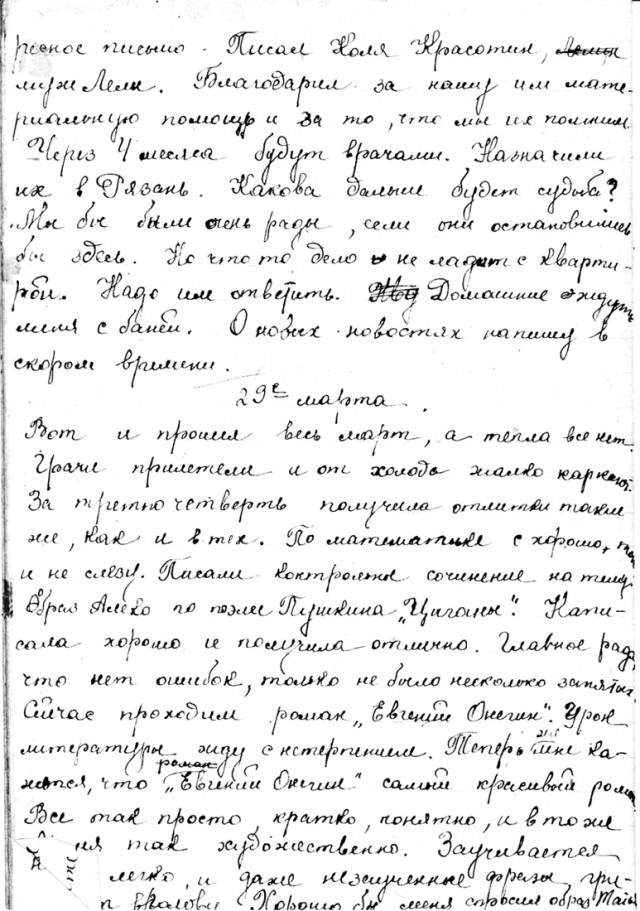 ресное письмо. Писал Коля Красоткин,
муж Лели. Благодарил за нашу им мате-
риальную помощь и за то, что мы их помним.
Через 4 месяса будут врачами. Назначили
их в Рязань. Какова дальше будет судьба?
Мы бы были очень рады, если они остановились
бы здесь. Но что то дело не ладит с кварти-
рой. Надо им ответить. Домашние ждут
меня с баней. О новых новостях напишу в
скором времени.
29е марта.
Вот и прошел весь март, а тепла все нет.
Грачи прилетели и от холода жалко каркают.
За третью четверть получила отметки такие
же, как и в тех. По математике с хорошо,
и не слезу. Писали контрольные сочинение на тему:
Образ Алеко по поэме Пушкина „Цыганы". Напи-
сала хорошо и получила отлично. Главное рада,
что нет ошибок, только не было несколько запятых.
Сейчас проходим роман „Евгений Онегин". Урок
литературы жду с нетерпением. Теперь мне ка-
жется, что роман „Евгений Онегин" самый красивый роман
Все так просто, кратко, понятно, и в то же
так художественно. Заучивается
легко, и даже незаученные фразы
в голове. Хорошо бы меня спросил образ